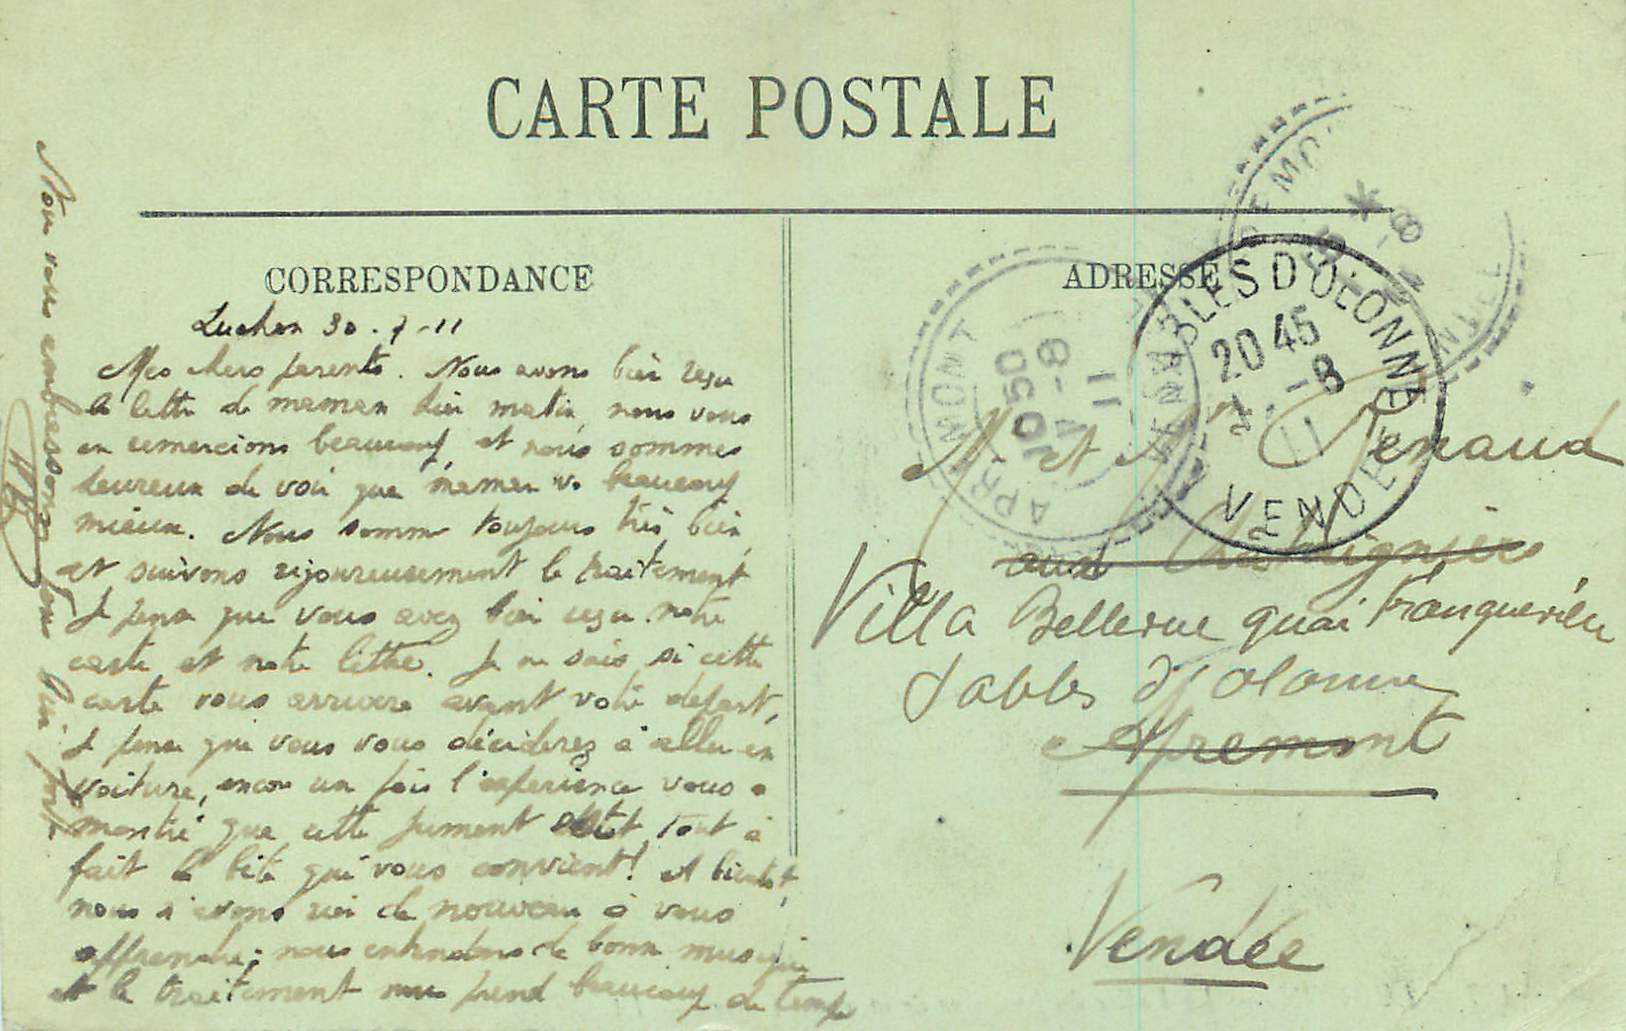 CARTE POSTALE
CORRESPONDANCE
Luchon 30-7-11
Mes chers parents. Nous avons bien reçu
la lettre de maman hier matin, nous vous
en remercions beaucoup et nous sommes
heureux de voir que maman va beaucoup
mieux. Nous sommes toujours très bien,
et suivons rigoureusement le traitement,
Je pense que vous avez bien reçu notre
carte et notre lettre. Je ne sais si cette
carte vous arrivera avant votre départ,
Je pense que vous vous déciderez à aller en
voiture, encore un fois l'expérience vous a
montré que cette jument était tout à
fait la bête qui vous convient! A bientôt,
nous n'avons rien de nouveau à vous
apprendre; nous entendons de bonne musique
et le traitement nous prend beaucoup de temps
Nous vous embrassons tous bien fort
ADRESSE
M et Mme Renaud
aux Chataigniers
Villa Bellevue quai Franqueville
Sables d'Olonne
Apremont
Vendée
SABLES D'OLONNE
20 45
1 - 8
11
VENDEE
APREMONT
10 50
1 - 8
11
VENDEE